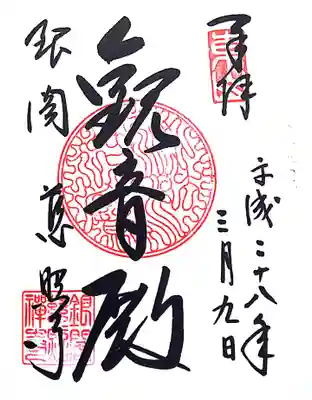 奉拝
平成二十八年
三月九日
観音殿
銀閣 慈照寺